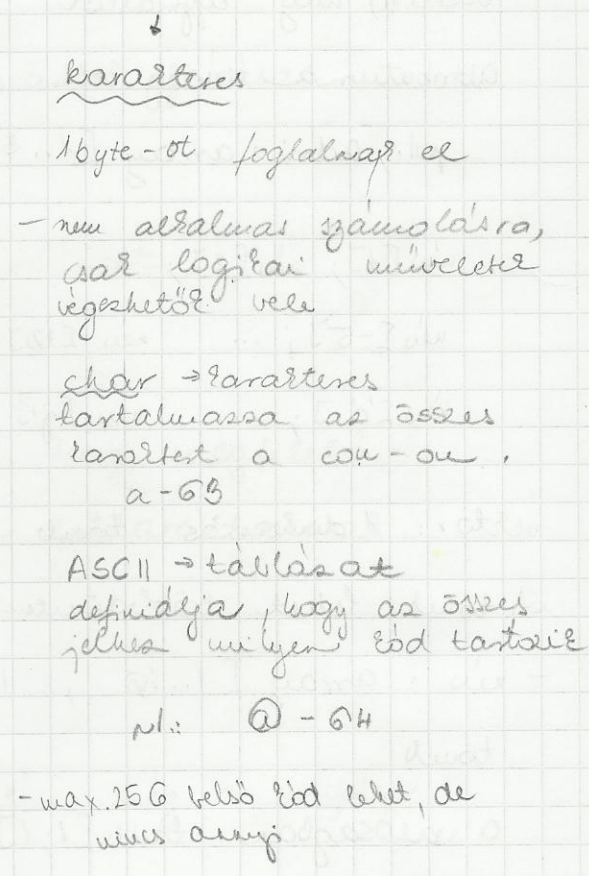 karakteres
1 byte-ot foglalnak el
- nem alkalmas számolásra,
csak logikai műveletek
végezhetők vele
char → karakteres
tartalmazza az összes
karaktert a com-on.
a - 63
ASCII → táblázat
definiálja, hogy az összes
jelhez milyen kód tartozik
pl.: @ - 64
- max. 256 belső kód lehet, de
nincs annyi